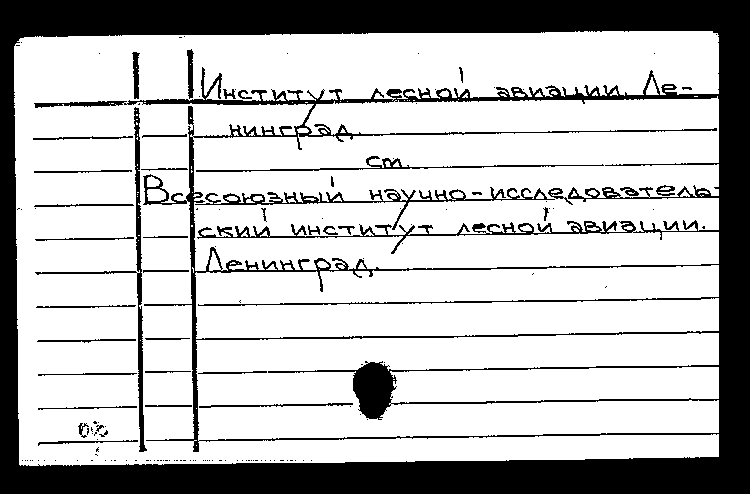 Институт лесной авиации. Ле-
нинград.
см.
Всесоюзный научно-исследователь-
ский институт лесной авиации.
Ленинград.